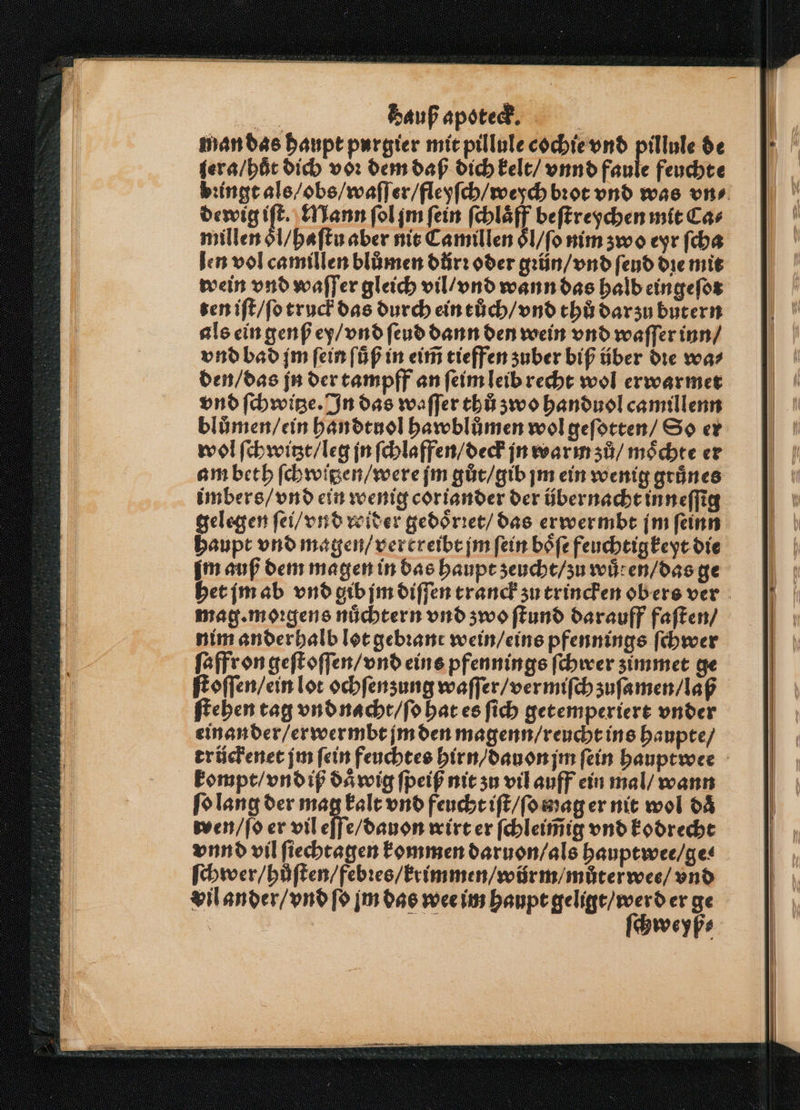 Hauß apoteck.
man das haupt purgier mit pillule cochie vnd pillule de
jera/hůt dich voꝛ dem daß dich kelt/ vnnd faule feuchte
bꝛingt als/obs/waſſer/fleyſch/weych bꝛot vnd was vn⸗
dewig iſt. Mann ſol jm ſein ſchlåff beſtreychen mit Ca⸗
millen oͤl/haſtu aber nit Camillen oͤl/ſo nim zwo eyr ſcha
len vol camillen blůmen důrꝛ oder gꝛün/vnd ſeud dꝛe mit
wein vnd waſſer gleich vil/vnd wann das halb eingeſot
ten iſt/ſo truck das durch ein tůch/vnd thů darzu butern
als ein genß ey/vnd ſeud dann den wein vnd waſſer inn/
vnd bad jm ſein fůß in eim̃ tieffen zuber biß über die wa⸗
den/das jn der tampff an ſeim leib recht wol erwarmet
vnd ſchwitze. In das waſſer thů zwo handuol camillenn
blůmen/ein handtuol hawblůmen wol geſotten/ So er
wol ſchwitzt/leg jn ſchlaffen/deck jn warm zů/ moͤchte er
am beth ſchwitzen/were jm gůt/gib jm ein wenig grůnes
imbers/vnd ein wenig coriander der übernacht inn eſſig
gelegen ſei/vnd wider gedoͤrꝛet/ das erwermbt jm ſeinn
haupt vnd magen/vertreibt jm ſein boͤſe feuchtigkeyt die
jm auß dem magen in das haupt zeucht/zu wůten/das ge
het jm ab vnd gib jm diſſen tranck zu trincken ob ers ver
mag. moꝛgens nůchtern vnd zwo ſtund darauff faſten/
nim anderhalb lot gebꝛant wein/eins pfennings ſchwer
ſaffron geſtoſſen/vnd eins pfennings ſchwer zimmet ge
ſtoſſen/ein lot ochſenzung waſſer/vermiſch zuſamen/laß
ſtehen tag vnd nacht/ſo hat es ſich getemperiert vnder
einander/erwermbt jm den magenn/reucht ins haupte/
trückenet jm ſein feuchtes hirn/dauon jm ſein hauptwee
kompt/vnd iß dåwig ſpeiß nit zu vil auff ein mal/ wann
ſo lang der mag kalt vnd feucht iſt/ſo mag er nit wol då
wen/ſo er vil eſſe/dauon wirt er ſchleim̃ig vnd kodrecht
vnnd vil ſiechtagen kommen daruon/als hauptwee/ge⸗
ſchwer/hůſten/febꝛes/krimmen/würm/můterwee/ vnd
vil ander/vnd ſo jm das wee im haupt geligt/werd er ge
ſchweyß⸗